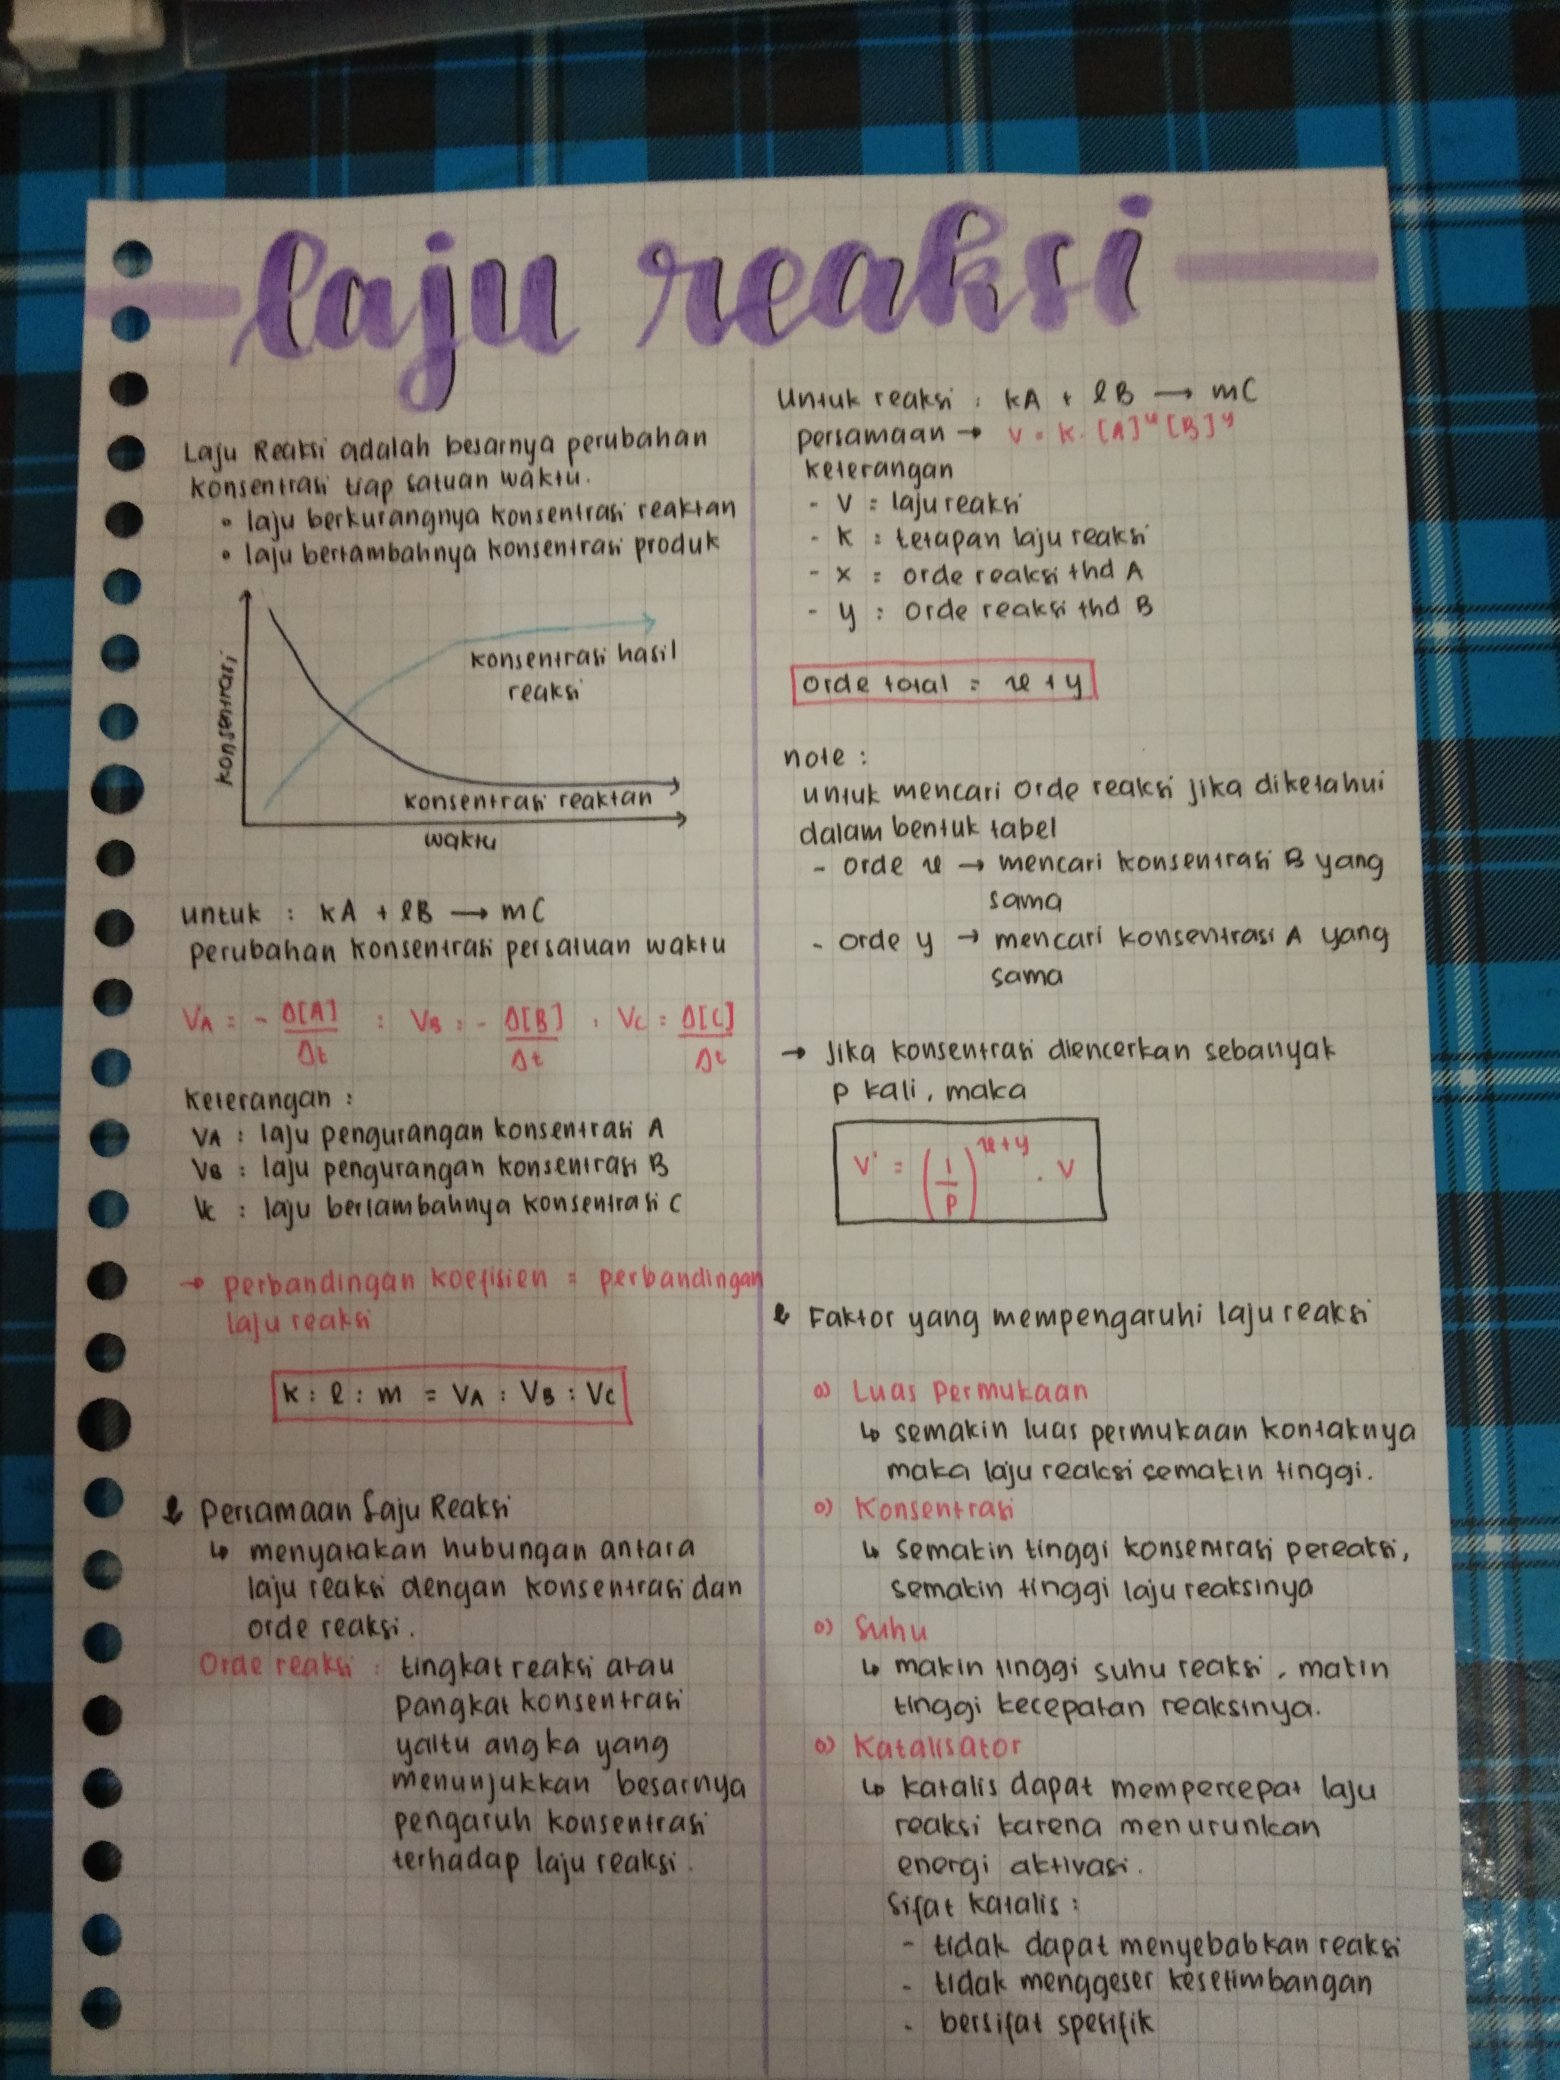 laju reaksi
Laju Reaksi adalah besarnya perubahan
konsentrasi tiap satuan waktu.
• laju berkurangnya konsentrasi reaktan
• laju bertambahnya konsentrasi produk
konsentrasi
konsentrasi hasil
reaksi
konsentrasi reaktan
waktu
untuk : kA + lB → mC
perubahan konsentrasi persatuan waktu
VA = - Δ[A]/Δt : VB = - Δ[B]/Δt : VC = Δ[C]/Δt
Keterangan :
VA : laju pengurangan konsentrasi A
VB : laju pengurangan konsentrasi B
Vc : laju bertambahnya konsentrasi C
→ perbandingan koefisien = perbandingan
laju reaksi
k : l : m = VA : VB : VC
Persamaan Laju Reaksi
↳ menyatakan hubungan antara
laju reaksi dengan konsentrasi dan
orde reaksi.
Orde reaksi : tingkat reaksi atau
pangkat konsentrasi
yaitu angka yang
menunjukkan besarnya
pengaruh konsentrasi
terhadap laju reaksi.
Untuk reaksi : kA + lB → mC
persamaan → V = k. [A]^x [B]^y
keterangan
- V = laju reaksi
- k : tetapan laju reaksi
- x = orde reaksi thd A
- y : orde reaksi thd B
Orde total = x + y
note :
untuk mencari orde reaksi jika diketahui
dalam bentuk tabel
- orde x → mencari konsentrasi B yang
sama
- orde y → mencari konsentrasi A yang
sama
→ Jika konsentrasi diencerkan sebanyak
p kali, maka
V' = (1/p)^x+y . V
Faktor yang mempengaruhi laju reaksi
o) Luas Permukaan
↳ semakin luas permukaan kontaknya
maka laju reaksi semakin tinggi.
o) Konsentrasi
↳ semakin tinggi konsentrasi pereaksi,
semakin tinggi laju reaksinya
o) Suhu
↳ makin tinggi suhu reaksi, makin
tinggi kecepatan reaksinya.
o) Katalisator
↳ katalis dapat mempercepat laju
reaksi karena menurunkan
energi aktivasi.
Sifat katalis :
- tidak dapat menyebabkan reaksi
- tidak menggeser kesetimbangan
- bersifat spesifik